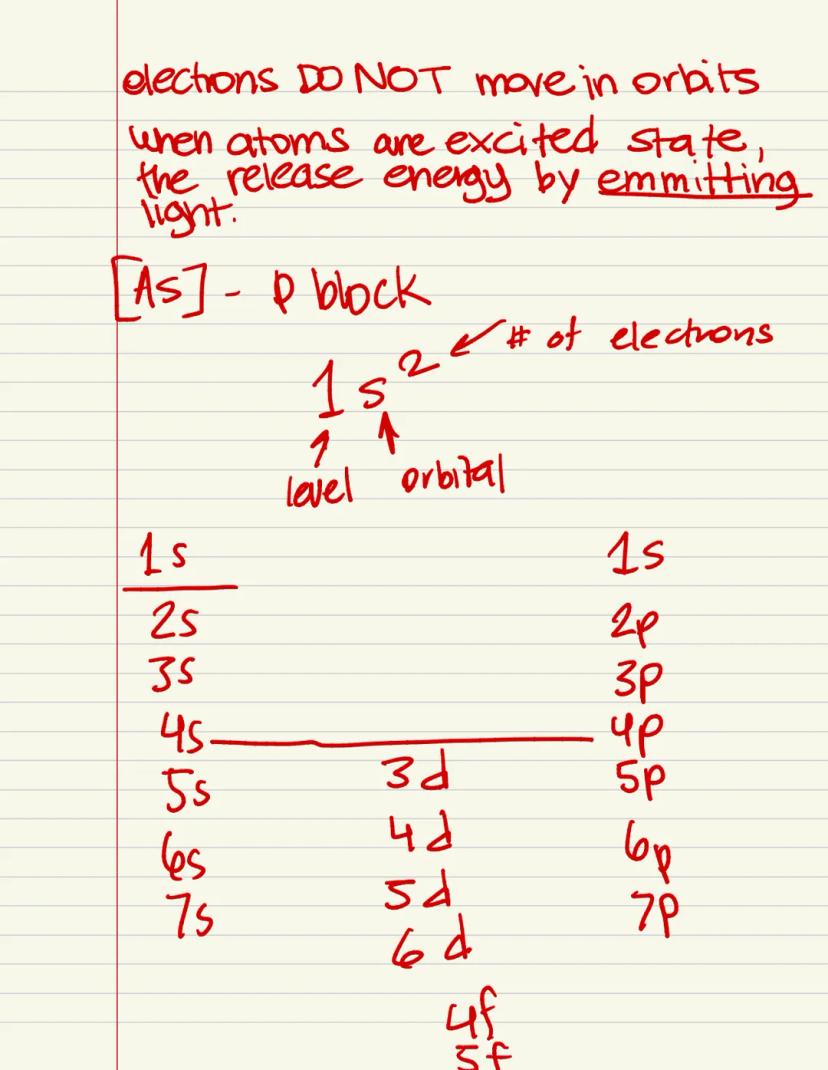 electrons DO NOT move in orbits
when atoms are excited state,
the release energy by emmitting
light.
[As] - p block
1s² ← # of electrons
level orbital
1s 1s
2s 2p
3s 3p
4s 4p
3d
5s 5p
4d
6s 6p
5d
7s 7p
6d
4f
5f